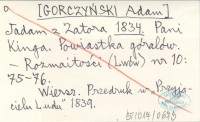 [GORCZYŃSKI Adam]
Jadam z Zatora 1834. Pani
Kinga. Powiastka góralów.
- Rozmaitości (Lwów) nr 10:
75-76.
Wiersz. Przedruk w „Przyja-
cielu Ludu" 1839.